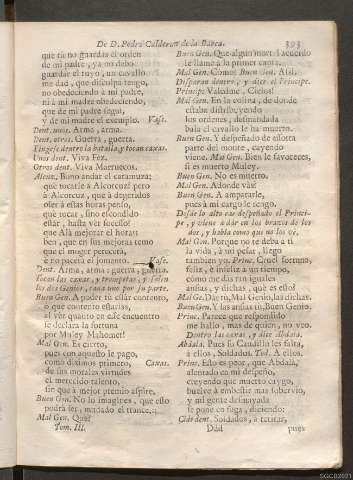 De D. Pedro Calderon de la Barca. 393
que tù no guardas el orden
de mi padre, ya no debo
guardar el tuyo, un cavallo
me dad, que disculpa tengo,
no obedeciendo à mi padre,
ni à mi madre obedeciendo,
que de mi padre seguì,
y de mi madre el exemplo. Vase.
Dent. unos. Arma, arma.
Dent. otros. Guerra, guerra.
Fingese dentro la batalla, y tocan caxas.
Unos dent. Viva Fez.
Otros dent. Viva Marruecos.
Alcuz. Bono andar el
que tocarle à Alcorcuz? pero
à Alcorcuz, què à dogerados
oler à estas horas
que tocar, sino escondido
estàr, hasta ver
que Alà mejorar el horas
ben, que en sus mejoras temo
que el mogor perecerà,
è no pocerà el Vase.
Dent. Arma, arma: guerra, guerra.
Tocan las caxas, y trompetas, y salen
los dos Genios, cada uno por su parte.
Buen Gen. A poder tù estàr contento,
ò què contento estarias,
al vèr quanto de ese encuentro
le declara la fortuna
por Muley Mahomet!
Mal Gen. Es cierto,
pues con aquesto le pago,
como diximos primero, Caxas.
de sus morales virtudes
el merecido talento,
sin que à mejor premio aspire.
Buen Gen. No lo imagines, que esso
podrà ser, mudado el trance.
Mal Gen. Què?
Tom. III.
Buen Gen. Que algun mortal acuerdo
le llame à la primer causa.
Mal Gen. Còmo? Buen Gen. Asi.
Disparan dentro, y dice el Principe.
Princip. Valedme, Cielos!
Mal Gen. En la colina, de donde
estaba distribuyendo
los ordenes, desmandada
bala el cavallo le ha muerto.
Buen Gen. Y despeñado de essotra
parte del monte, cayendo
viene. Mal Gen. Bien le favoreces,
si es muerto Muley.
Buen Gen. No es muerto.
Mal Gen. Adonde vàs?
Buen Gen. A ampararle,
pues à mi cargo le tengo.
Desde lo alto cae despeñado el Princi-
pe, y viene à dàr en los brazos de los
dos, y habla como que no los vè.
Mal Gen. Porque no te deba à ti
la vida, à un pesar, llego
tambien yo. Princ. Cruel fortuna,
feliz, è infeliz à un tiempo,
còmo me dàs tan iguales
ansias, y dichas, què es esto?
Mal Gen. Darte, Mal Genio, las dichas.
Buen Gen. Y las ansias tu Buen Genio.
Princ. Parece que respondido
me hallo, mas de quien, no veo.
Dentro las caxas, y dice Abdala.
Abdala. Pues su Caudillo les falta,
à ellos, Soldados. Tod. A ellos.
Princ. Esto es peor, que Abdalà,
alentado en mi despeño,
creyendo que muerto caygo,
buelve à embestir mas sobervio,
y mi gente desmayada
se pone en fuga, diciendo:
Cide dent. Soldados, à retirar,
Ddd pues